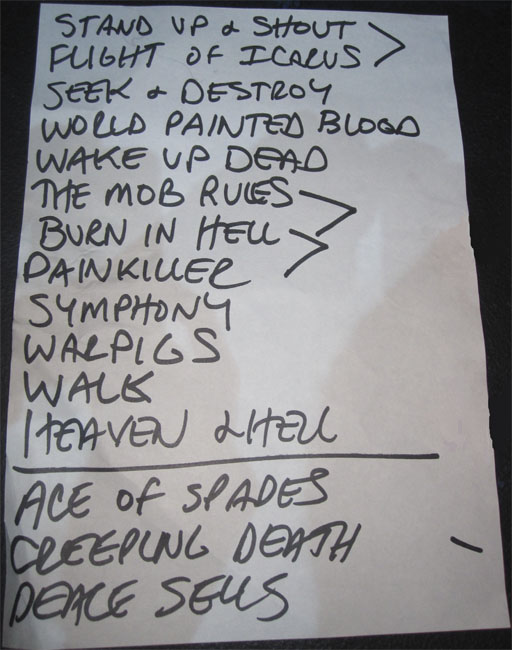 STAND UP & SHOUT
FLIGHT OF ICARUS
SEEK & DESTROY
WORLD PAINTED BLOOD
WAKE UP DEAD
THE MOB RULES
BURN IN HELL
PAINKILLER
SYMPHONY
WARPIGS
WALK
HEAVEN & HELL
ACE OF SPADES
CREEPING DEATH
PEACE SELLS